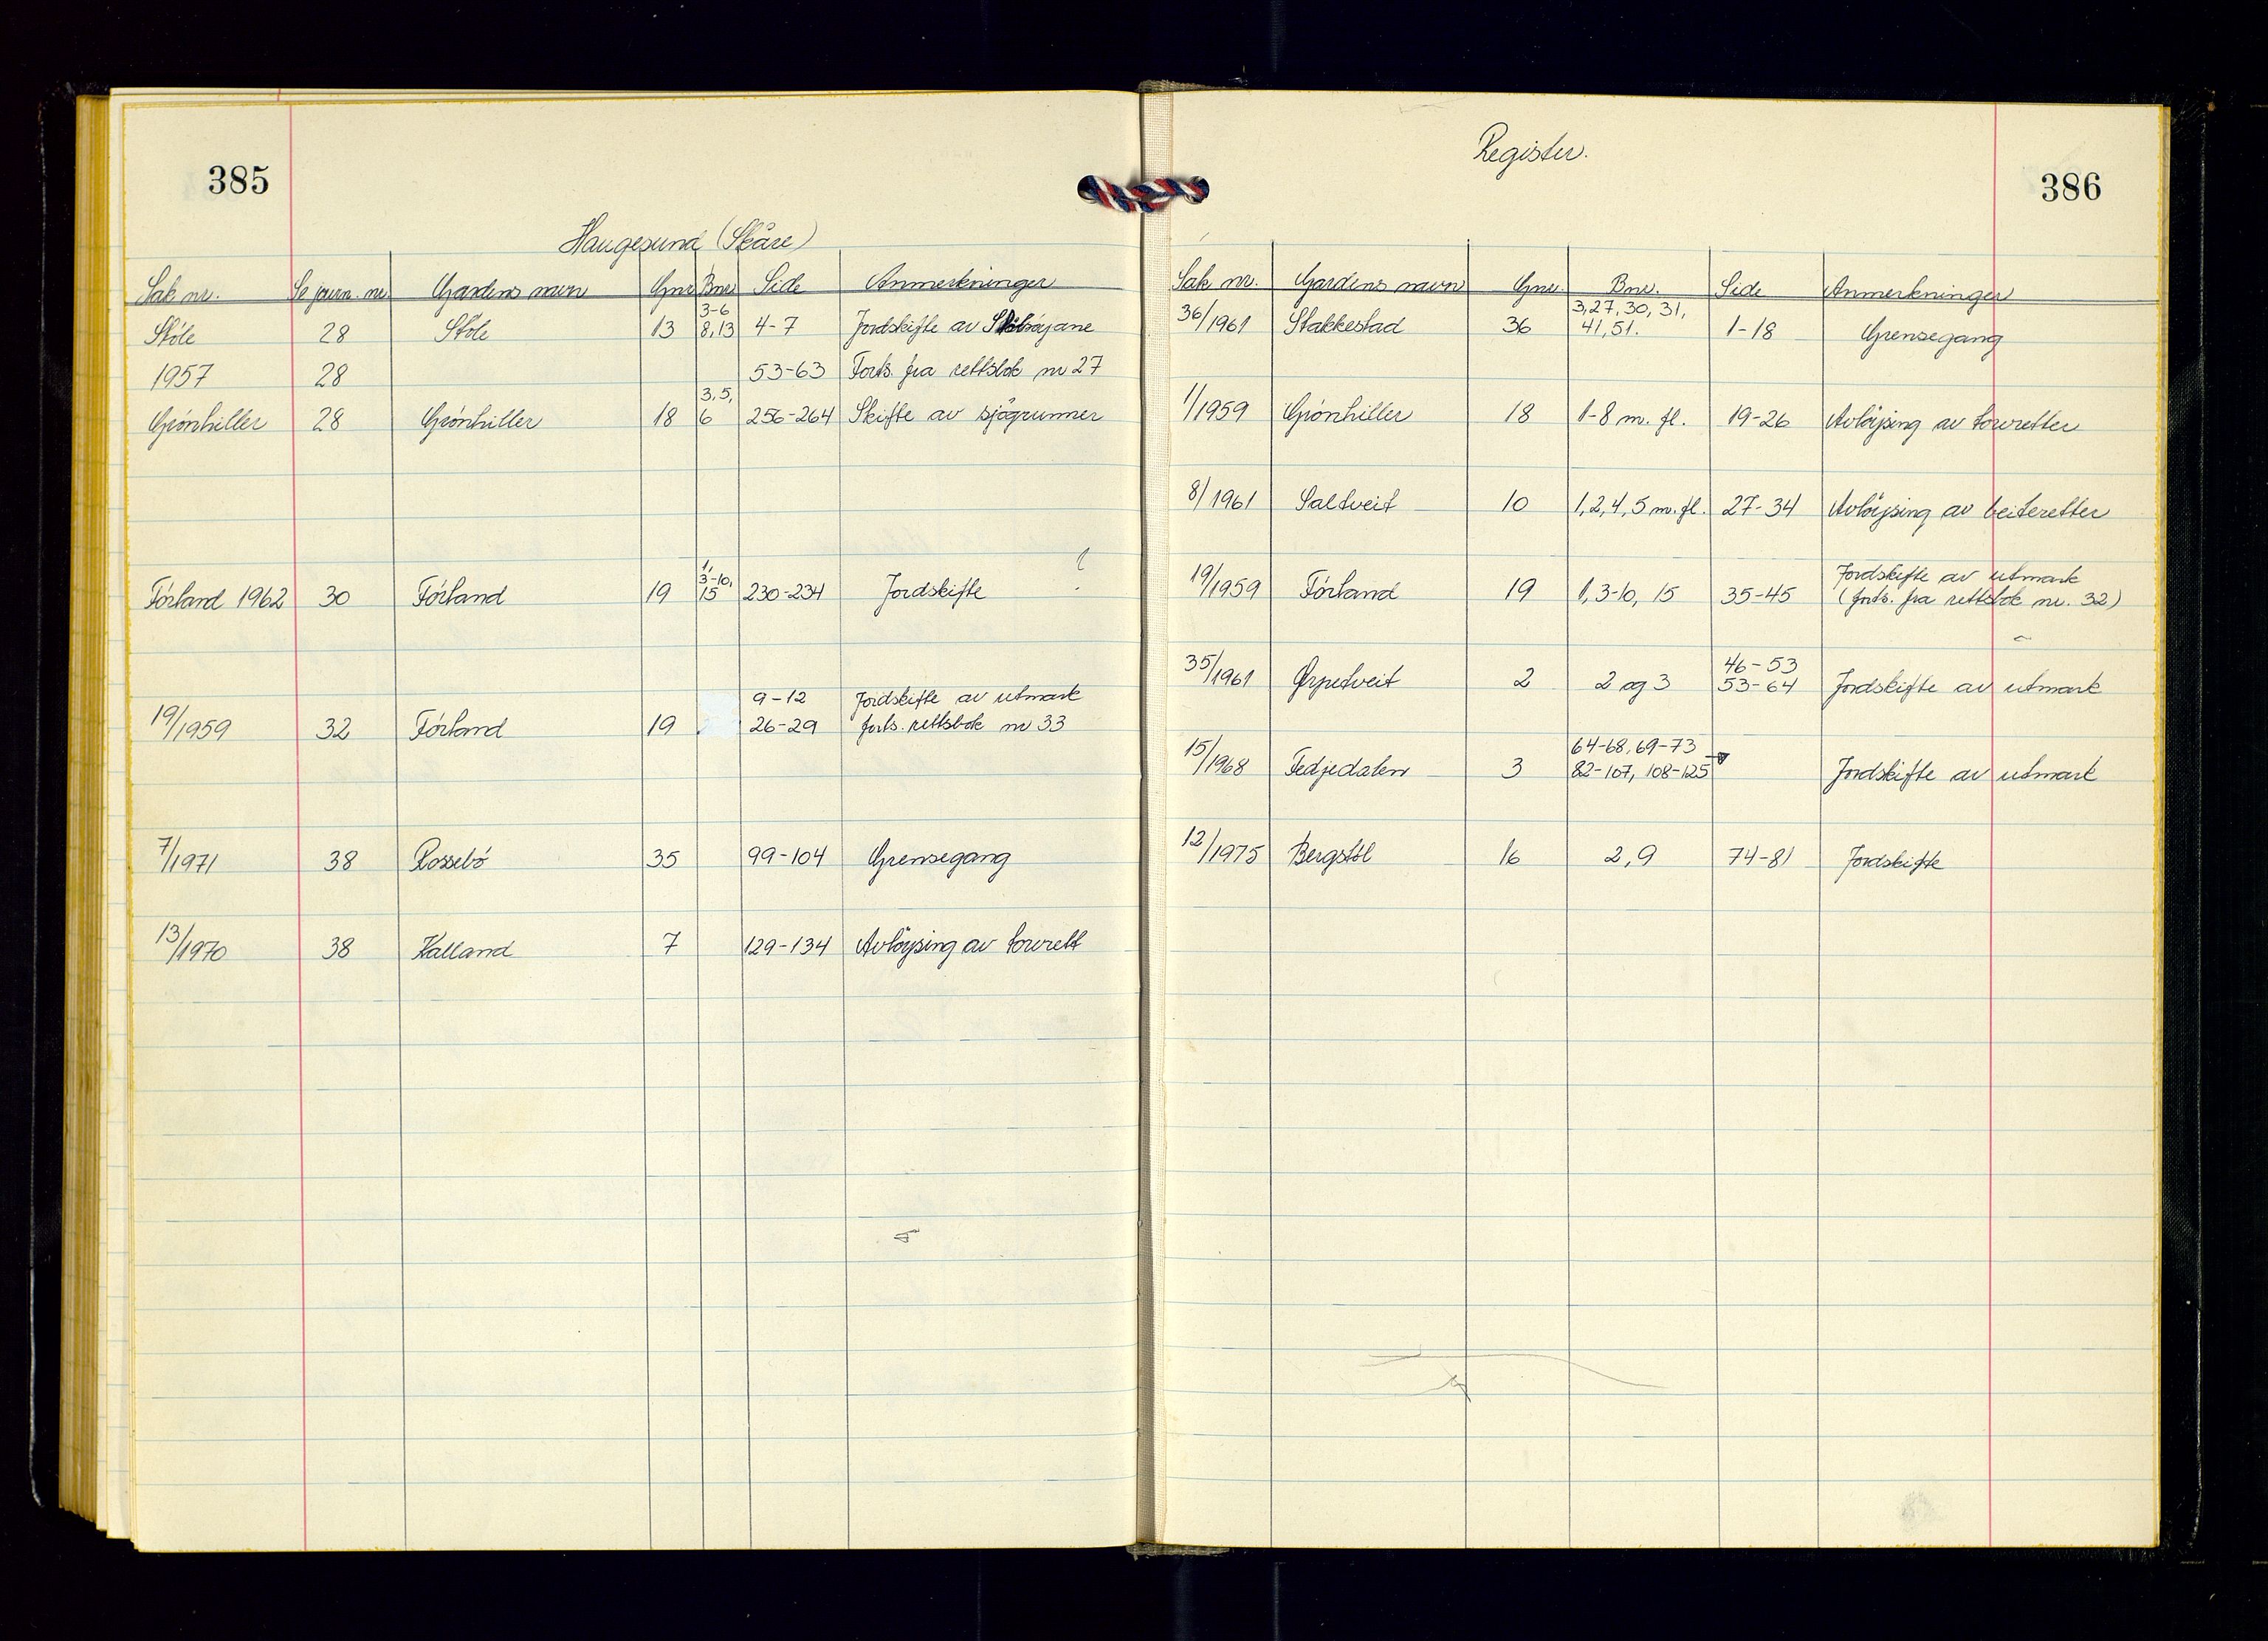 385
Haugesund (Skåre)
Sak nr. Se journ. nr. Gardens navn Gnr Bnr Side Anmerkninger
3-6
Stöle 28 Stöle 13 8,13 4-7 Jordskifte av
1957 28 53-63 Forts. fra rettsbok nr 27
3, 5,
Grönhiller 28 Grönhiller 18 6 256-264 Skifte av sjögrunner
1,
3-10,
Förland 1962 30 Förland 19 15 230-234 Jordskifte
9-12 Jordskifte av utmark
19/1959 32 Förland 19 26-29 forts. rettsbok nr 33
7/1971 38 Rossebö 35 99-104 Grensegang
13/1970 38 Kalland 7 129-134 Avlöysing av torvrett
Register.
386
Sak nr. Gardens navn Gnr. Bnr. Side Anmerkninger
3, 27, 30, 31,
36/1961 Stakkestad 36 41, 51. 1-18 Grensegang
1/1959 Grönhiller 18 1-8 m. fl. 19-26 Avlöysing av torvretter
8/1961 Saltveit 10 1, 2, 4, 5 m. fl. 27-34 Avlöysing av beiteretter
Jordskifte av utmark
19/1959 Förland 19 1, 3-10, 15 35-45 (forts. fra rettsbok nr. 32)
46-53
35/1961 Ørpetveit 2 2 og 3 53-64 Jordskifte av utmark
64-68, 69-73
15/1968 Fedjedalen 3 82-107, 108-125 Jordskifte av utmark
12/1975 Bergstöl 16 2, 9 74-81 Jordskifte